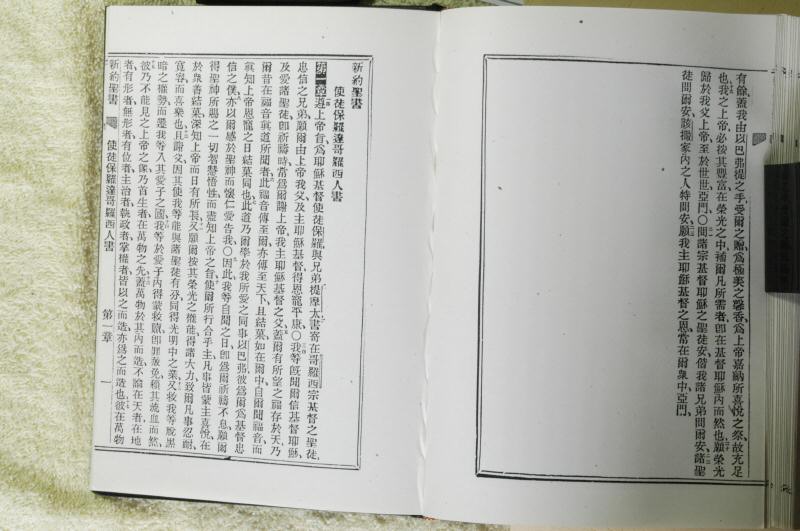 有餘、蓋我由以巴弗提之手受爾之賜、爲極美之馨香、爲上帝嘉納所喜悅之祭、故充足
也、我之上帝必按其豐富、在榮光之中、補爾凡所需者、卽在基督耶穌內而然也、願榮光
歸於我父上帝、至於世世、亞門、○問諸宗基督耶穌之聖徒安、偕我諸兄弟問爾安、諸聖
徒問爾安、該撒家內之人特問安、願我主耶穌基督之恩、常在爾衆中、亞門、
新約聖書
使徒保羅達哥羅西人書
第一章 遵上帝旨、爲耶穌基督使徒保羅、與兄弟提摩太、書寄在哥羅西宗基督之聖徒、
忠信之兄弟、願爾由上帝我父、及主耶穌基督、得恩寵平康、○我等旣聞爾信基督耶穌、
及愛諸聖徒、卽祈禱時、常爲爾謝上帝我主耶穌基督之父、蓋爾有所望之福、存於天、乃
爾昔在福音眞道所聞者、此福音傳至爾、亦傳至天下、且結菓、如在爾中、自爾聞福音、而
眞知上帝恩寵之日、結菓同也、此道乃爾學於我所愛之同事以巴弗、彼爲爾爲基督忠
信之僕、亦以爾感於聖神而懷仁愛告我、○因此我等自聞之日、卽爲爾祈禱不息、願爾
得聖神所賜之一切智慧悟性、而盡知上帝之旨、使爾所行合乎主、凡事皆蒙主喜悅、在
於衆善結菓、深知上帝而日有所長、又願爾按其榮光之權能、得諸大力、致爾凡事忍耐、
寬容而喜樂也、且謝父、因其使我等能與諸聖徒有分、同得光明中之業、又救我等脫黑
暗之權勢、而遷我等入其愛子之國、我等於愛子內得蒙救贖、卽罪赦免、賴其流血而然、
彼乃不能見之上帝之像、乃首生者、在萬物之先、蓋萬物於其內而造、不論在天者、在地
者、有形者、無形者、有位者、主治者、執政者、掌權者、皆以之而造、亦爲之而造也、彼在萬物
新約聖書 使徒保羅達哥羅西人書 第一章 一